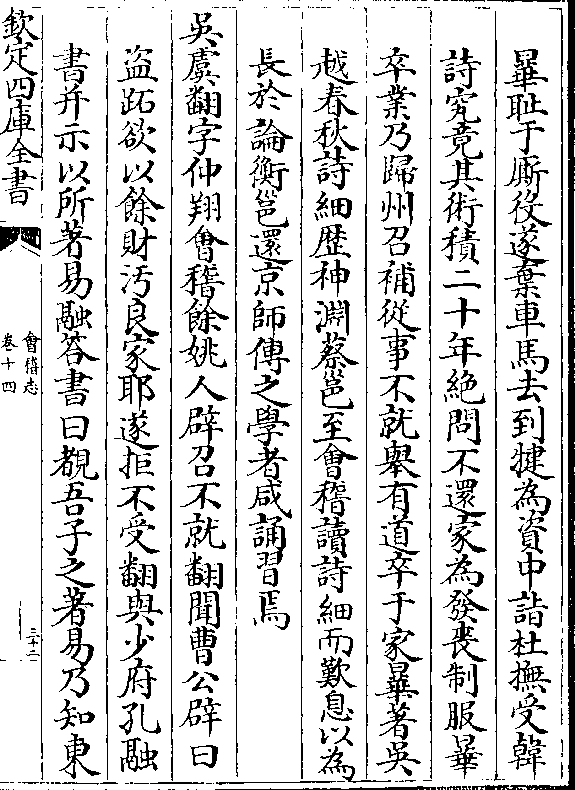 曅恥于厮役遂棄車馬去到犍為資中詣杜撫受韓
詩究竟其術積二十年絶問不還家為發喪制服曅
卒業乃歸州召補從事不就舉有道卒于家曅著吳
越春秋詩細歴神淵蔡邕至會稽讀詩細而歎息以為
長於論衡邕還京師傳之學者咸誦習焉
吳虞翻字仲翔會稽餘姚人辟召不就翻聞曹公辟曰
盗跖欲以餘財汚良家耶遂拒不受翻與少府孔融
書并示以所著易融答書曰覩吾子之著易乃知東
欽定四庫全書
會稽志
卷十四
三十二